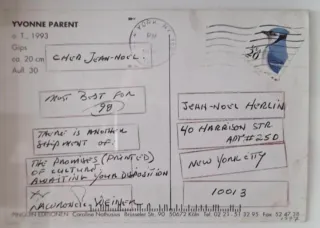 YVONNE PARENT
o T., 1993
Gips
ca. 20 cm
Aufl. 30
CHER JEAN-NOEL
MOST BEST FOR
99
THERE IS ANOTHER
SHIPMENT OF
THE PROMISES (PRINTED)
OF CULTURE
AWAITING YOUR DISPOSITION
LAWRENCE WEINER
JEAN-NOEL HERLIN
40 HARRISON STR
APT #25D
NEW YORK CITY
10013
EDITIONEN Caroline Nathusius Brüsseler Str. 90 50672 Köln Tel 02 21 - 51 32 95 Fax 52 87 38